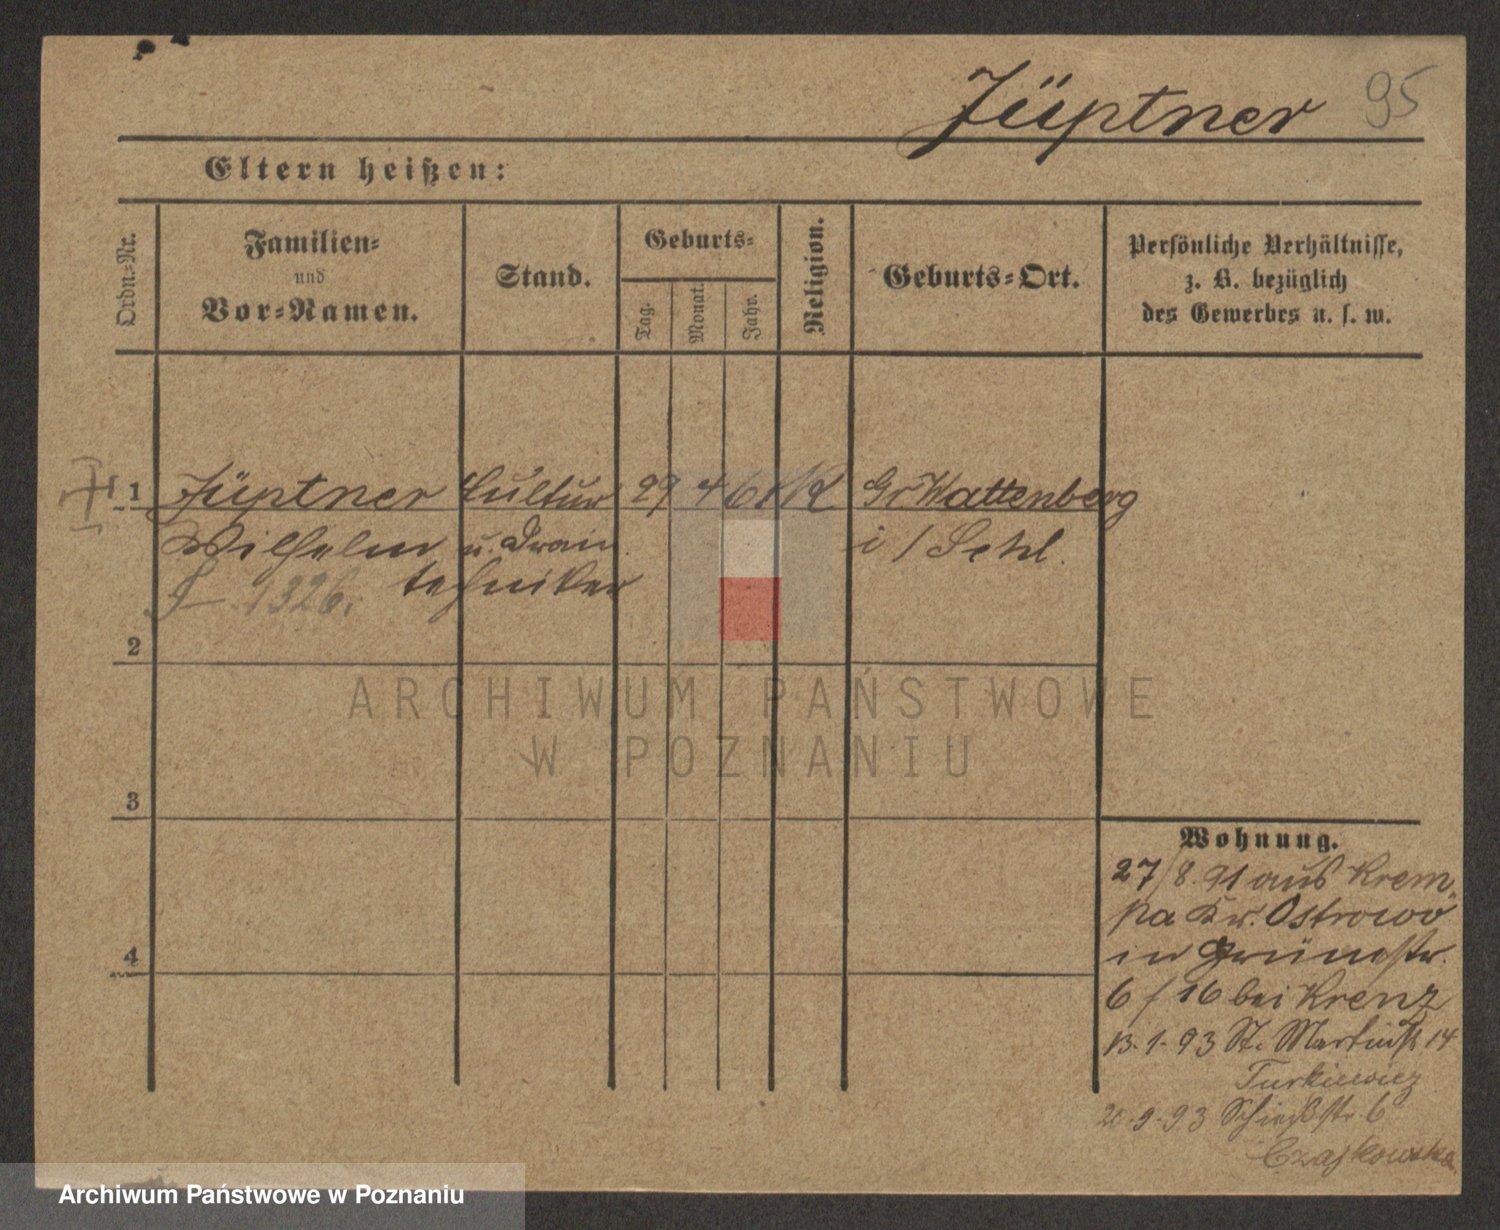 Jüptner 95
Eltern heißen:
Ordn.=Nr.
Familien=
und
Vor=Namen.
Stand.
Geburts=
Tag.
Monat.
Jahr.
Religion.
Geburts=Ort.
Persönliche Verhältnisse,
z. B. bezüglich
des Gewerbes u. s. w.
1 Jüptner Kultur 29 4 61 K Gr Wattenberg
Wilhelm u. Drain i / Schl.
1326. techniker
2
ARCHIWUM PAŃSTWOWE
W POZNANIU
3
4
Wohnung.
27/8 91 aus Krem
pa Kr. Ostrowo
in Grünestr.
6 / 16 bei Krenz
13.1.93 St. Martinstr 14
Turkiewicz
20.9.93 Schießstr 6
Czajkowska
Archiwum Państwowe w Poznaniu